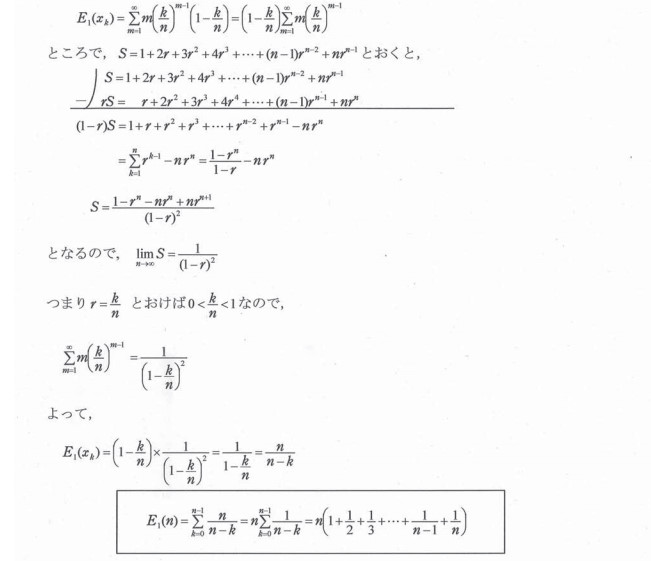 E₁(xₖ) = ∑_{m=1}^{∞} m(k/n)^{m-1}(1 - k/n) = (1 - k/n)∑_{m=1}^{∞} m(k/n)^{m-1}
ところで， S = 1 + 2r + 3r² + 4r³ + ⋯ + (n-1)r^{n-2} + nr^{n-1} とおくと，
S = 1 + 2r + 3r² + 4r³ + ⋯ + (n-1)r^{n-2} + nr^{n-1}
−) rS = r + 2r² + 3r³ + 4r⁴ + ⋯ + (n-1)r^{n-1} + nrⁿ
(1-r)S = 1 + r + r² + r³ + ⋯ + r^{n-2} + r^{n-1} - nrⁿ
= ∑_{k=1}^{n} r^{k-1} - nrⁿ = (1-rⁿ)/(1-r) - nrⁿ
S = (1 - rⁿ - nrⁿ + nr^{n+1})/(1-r)²
となるので， lim_{n→∞} S = 1/(1-r)²
つまり r = k/n とおけば 0 < k/n < 1 なので，
∑_{m=1}^{∞} m(k/n)^{m-1} = 1/(1 - k/n)²
よって，
E₁(xₖ) = (1 - k/n) × 1/(1 - k/n)² = 1/(1 - k/n) = n/(n-k)
E₁(n) = ∑_{k=0}^{n-1} n/(n-k) = n∑_{k=0}^{n-1} 1/(n-k) = n(1 + 1/2 + 1/3 + ⋯ + 1/(n-1) + 1/n)